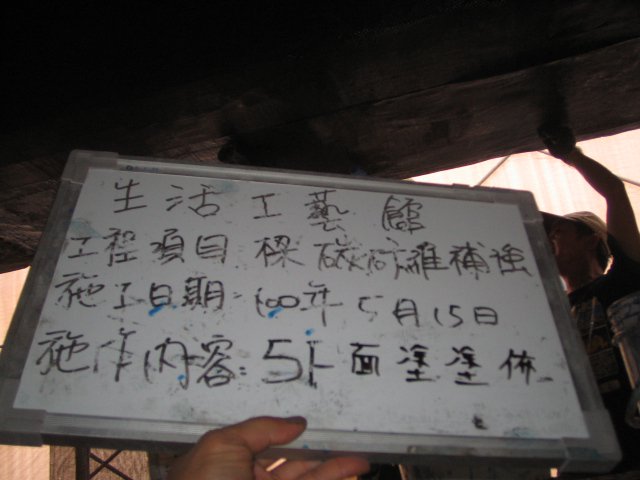 生活工藝館
工程項目:樑碳纖維補強
施工日期:100年5月15日
施作內容:5F面塗塗佈